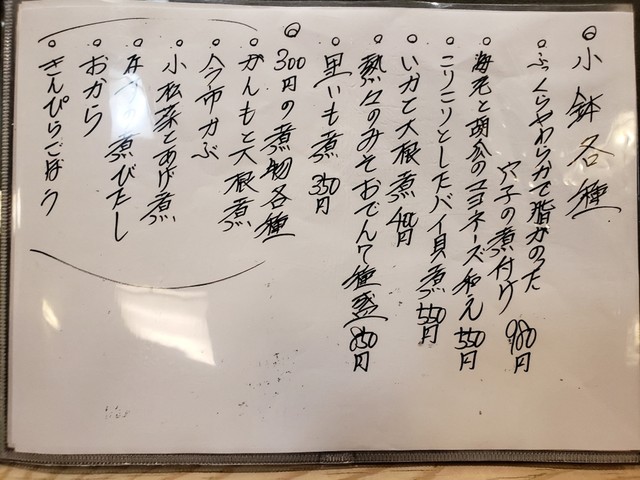 ◎小鉢各種
○ふっくらやわらかで脂がのった
穴子の煮付け 980円
○海老と胡瓜のマヨネーズ和え 550円
○こりこりとしたバイ貝煮 550円
○いかと大根煮 400円
○熱々のみそおでん7種盛 850円
○里いも煮 350円
◎300円の煮物各種
○がんもと大根煮
○今市かぶ
○小松菜とあげ煮
○なすの煮びたし
○おから
○きんぴらごぼう